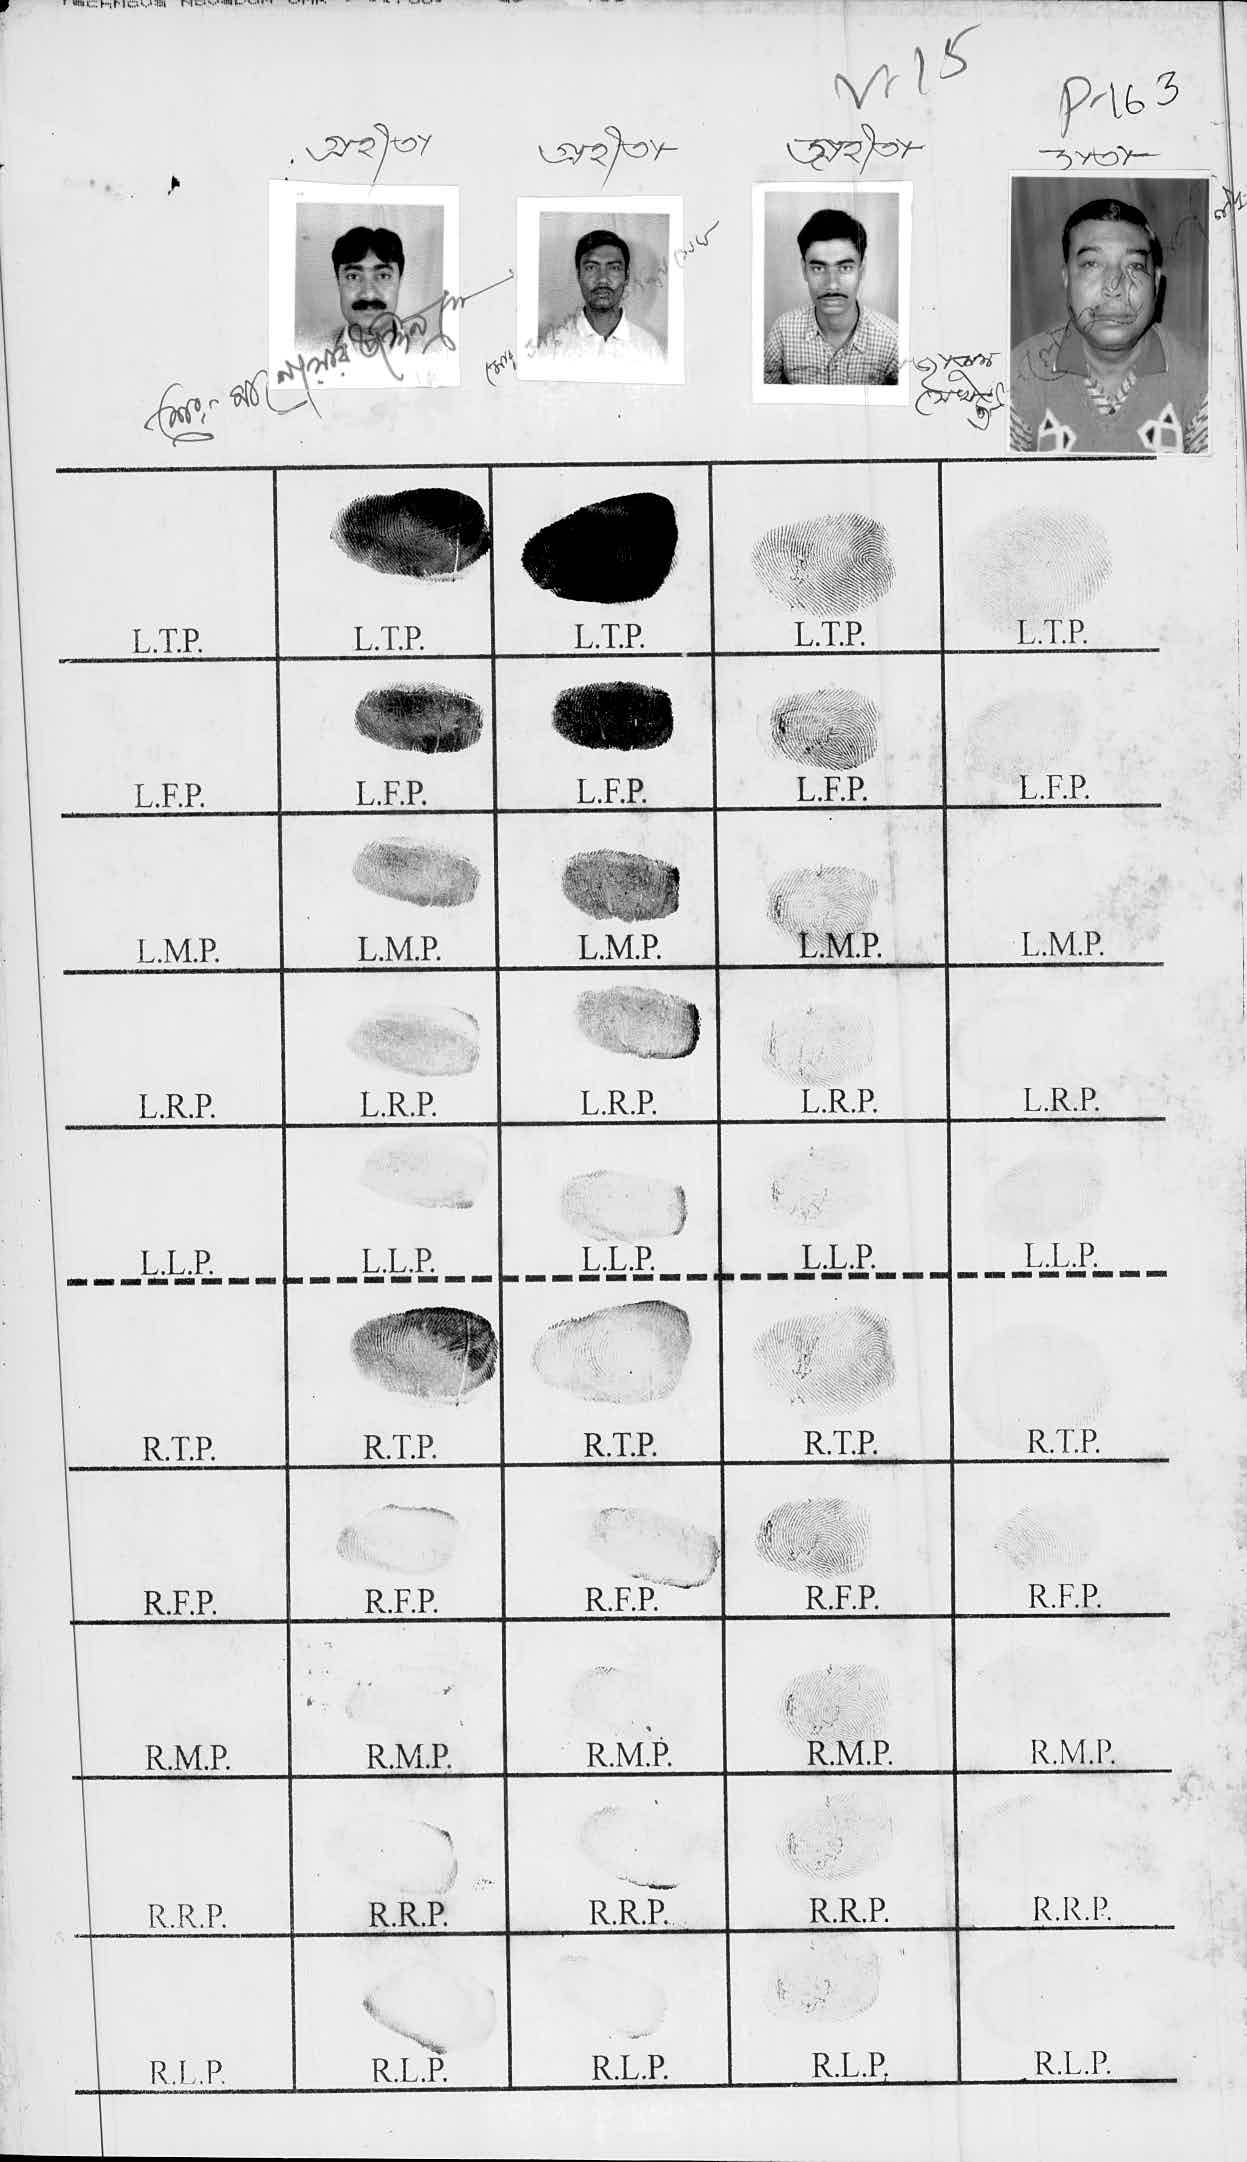 V-15
P-163
গ্রহীতা গ্রহীতা গ্রহীতা দাতা
L.T.P. L.T.P. L.T.P. L.T.P. L.T.P.
L.F.P. L.F.P. L.F.P. L.F.P. L.F.P.
L.M.P. L.M.P. L.M.P. L.M.P. L.M.P.
L.R.P. L.R.P. L.R.P. L.R.P. L.R.P.
L.L.P. L.L.P. L.L.P. L.L.P. L.L.P.
R.T.P. R.T.P. R.T.P. R.T.P. R.T.P.
R.F.P. R.F.P. R.F.P. R.F.P. R.F.P.
R.M.P. R.M.P. R.M.P. R.M.P. R.M.P.
R.R.P. R.R.P. R.R.P. R.R.P. R.R.P.
R.L.P. R.L.P. R.L.P. R.L.P. R.L.P.